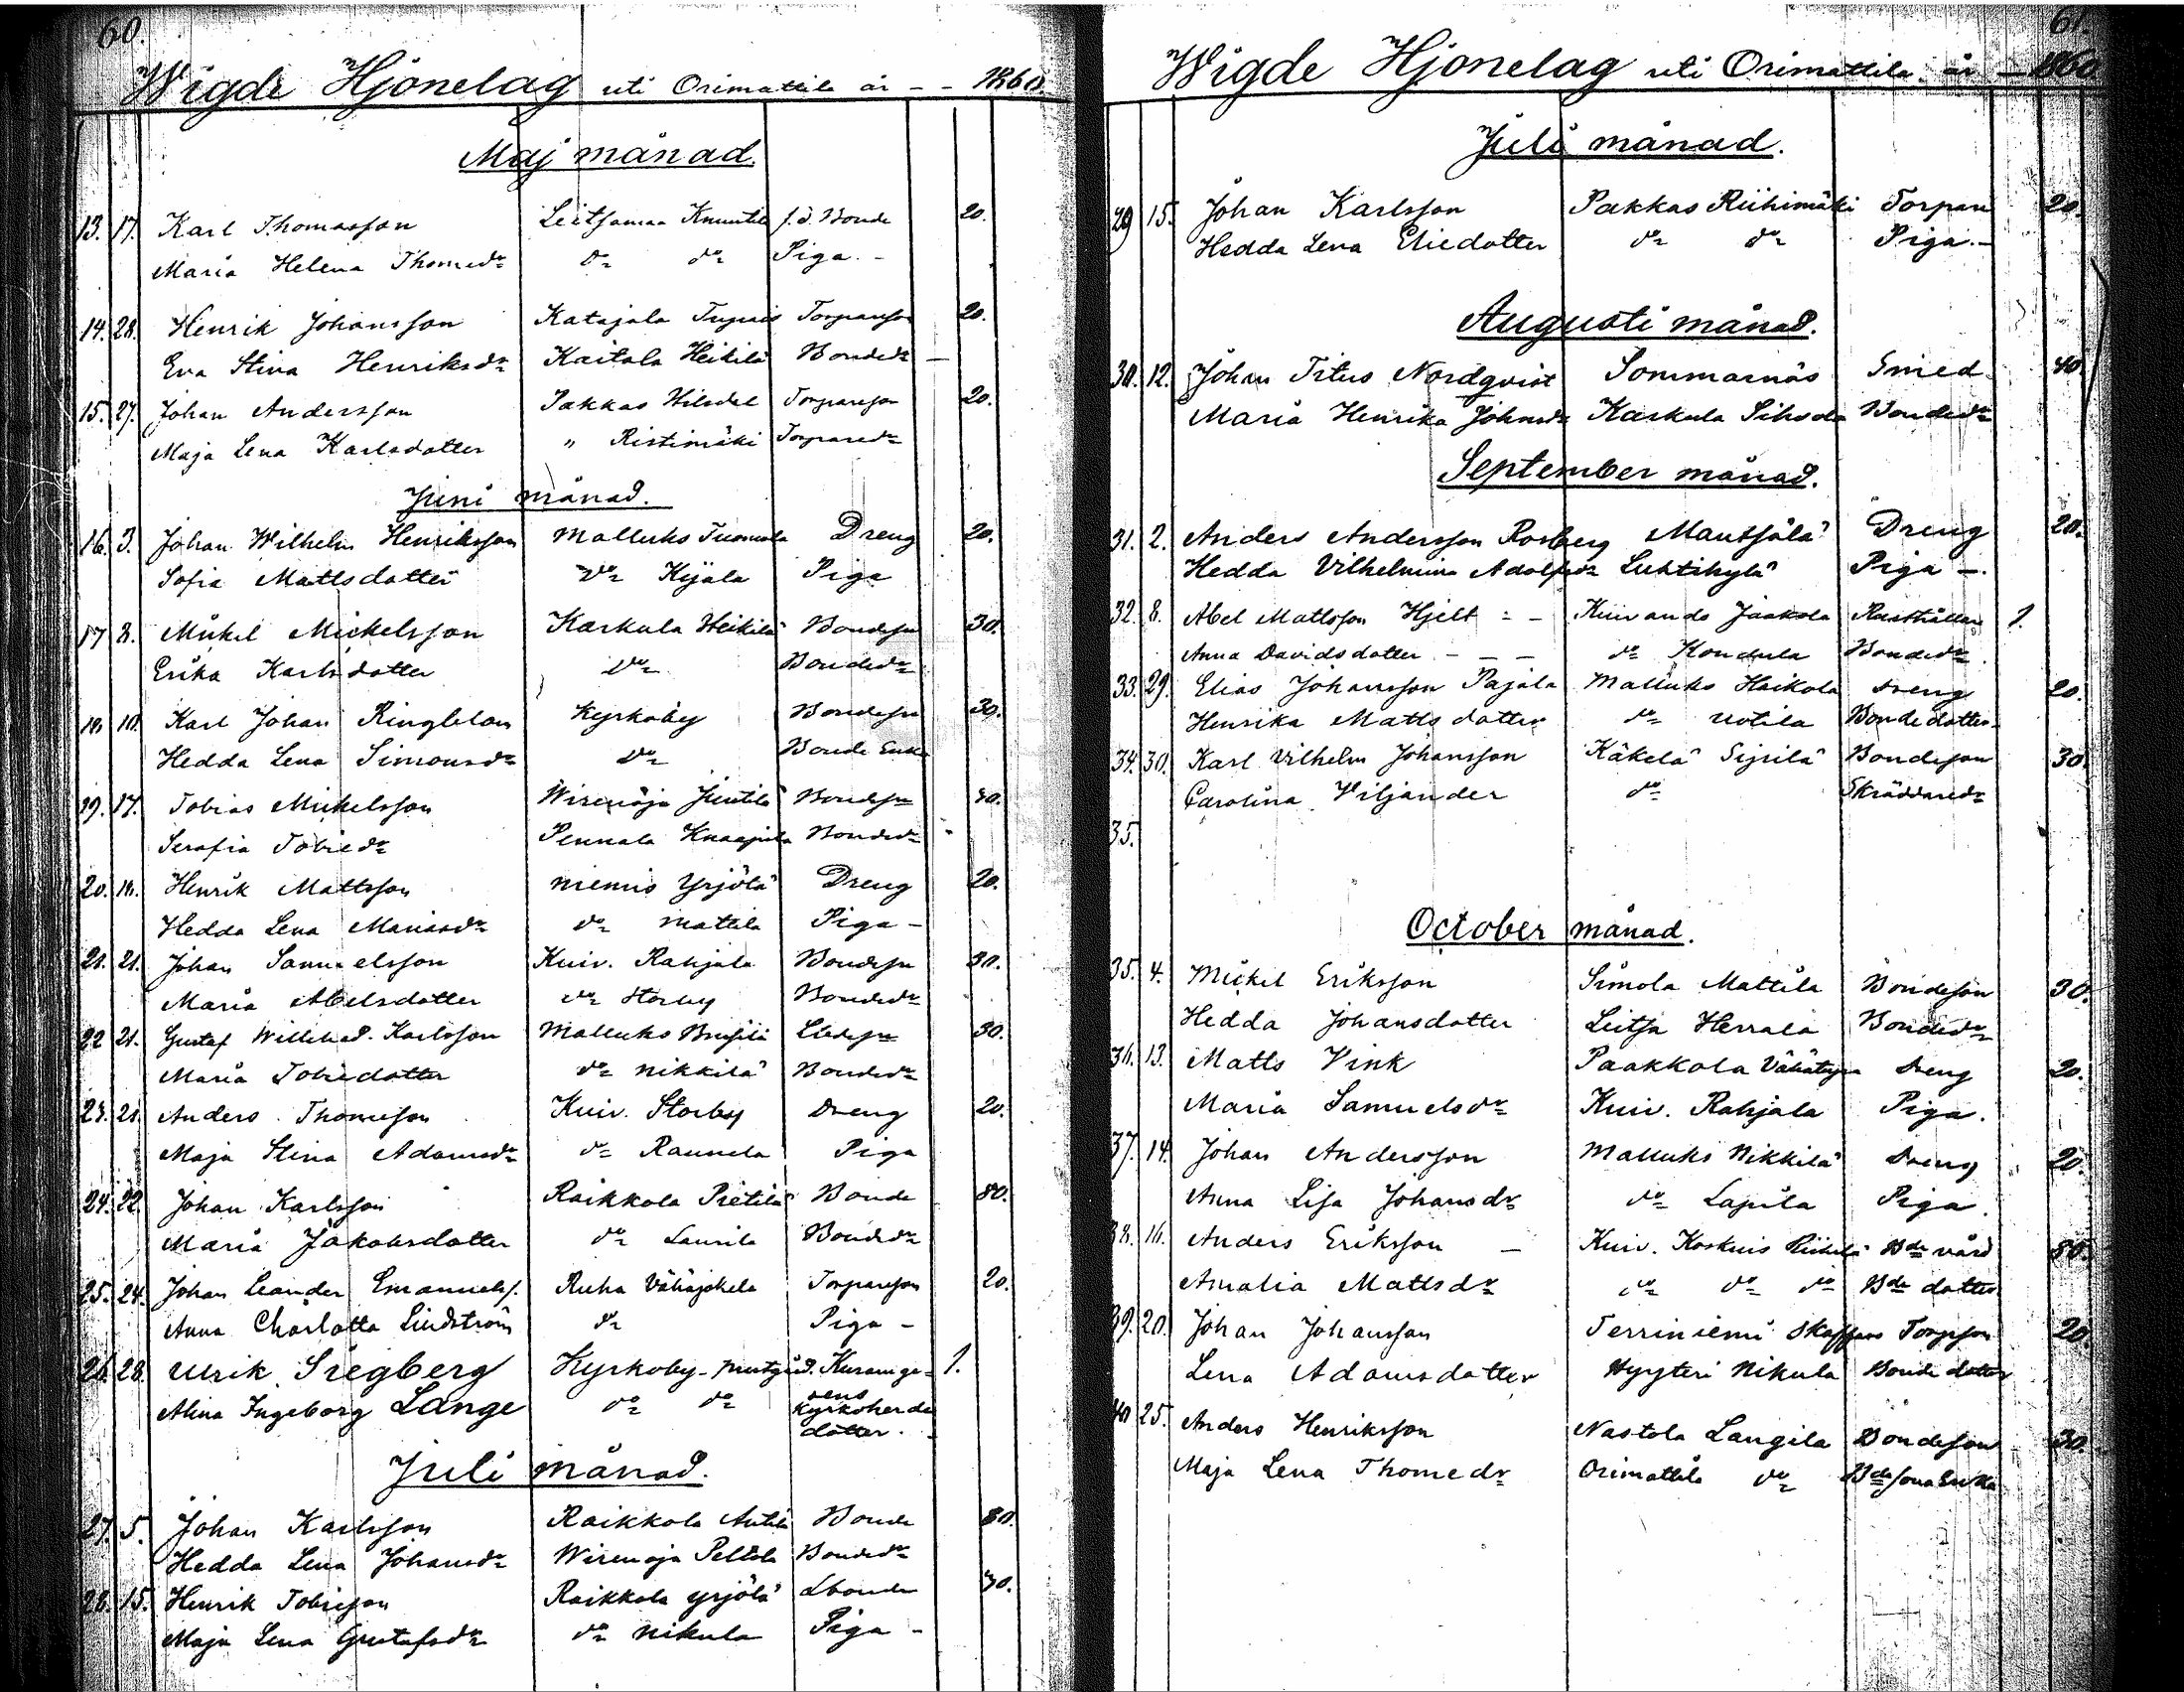 60.
Wigde Hjonelag uti Orimattila år - - 1860.
Maj månad.
13. 17. Karl Thomasson Leitsamaa Knuutila f.d. Bonde 20.
Maria Helena Thomedr do do Piga -
14. 28. Henrik Johansson Katajala Torparson 20.
Eva Stina Henriksdr Kaitala Heikilä Bondedr -
15. 27. Johan Andersson Pakkas Torpareson 20.
Maja Lena Karlsdotter " Ristimäki Torparedr
Juni månad.
16. 3. Johan Wilhelm Henriksson Malluks Tuomala Dreng 20.
Sofia Mattsdotter Do Kijala Piga
17 8. Mickel Mickelsson Karkula Heikilä Bondeson 30.
Erika Karlsdotter Do Bondedr
18 10. Karl Johan Ringblom Kyrkoby Bondeson 30.
Hedda Lena Simonsdr Do Bonde Enka
19. 17. Tobias Mickelsson Wirenoja Juutila Bondeson 30.
Serafia Tobiedr Pennala Knaapila Bondedr
20. 18. Henrik Mattsson Niemis Yrjölä Dreng 20.
Hedda Lena do Mattila Piga -
21. 21. Johan Samuelsson Kuiv. Rahjala Bondeson 30.
Maria Abelsdotter do Storby Bondedr
22 21. Gustaf Willehad Karlsson Malluks 30.
Maria Tobiedotter do Nikkilä Bondedr
23. 21. Anders Thomeson Kuiv. Storby Dreng 20.
Maja Stina Adamsdr do Raunela Piga
24. 22. Johan Karlsson Raikkola Pietilä Bonde 80.
Maria Jakobsdotter do Laurila Bondedr
25. 24. Johan Leander Emanuels. Ruha Vähäjokela Torpareson 20.
Anna Charlotta Lindström do Piga -
26. 28. Ulrik Siegberg Kyrkoby 1.
Alina Ingeborg Lange do do Kyrkoherde
dotter.
Juli månad.
27. 5. Johan Karlsson Raikkola Antila Bonde 80.
Hedda Lena Johansdr Wirenoja Peltola Bondedr
28. 15. Henrik Tobieson Raikkola Yrjölä Lbonde 30.
Maja Lena Gustafsdr do Nikula Piga -
61.
Wigde Hjonelag uti Orimattila år - 1860
Juli månad.
29 15. Johan Karlsson Pakkas Riihimäki Torpare 20.
Hedda Lena Eliedotter do do Piga -
Augusti månad.
30. 12. Johan Titus Nordqvist Sommarnäs Smed 40.
Maria Henrika Johansdr Karkula Sihvola Bondedr
September månad.
31. 2. Anders Andersson Rosberg Mantsälä Dreng 20.
Hedda Vilhelmina Adolfsdr Luhtikylä Piga -
32. 8. Abel Mattsson Hjelt - - Kuivands Jaakola Rusthållare 1.
Anna Davidsdotter - - - do Kondula Bondedr
33. 29. Elias Johansson Pajala Malluks Heikola Dreng 20.
Henrika Mattsdotter do Uotila Bondedotter
34. 30. Karl Vilhelm Johansson Käkelä Sipilä Bondeson 30.
Carolina Viljander do Skräddaredr
35.
October månad.
35. 4. Mickel Eriksson Simola Mattila Bondeson 30.
Hedda Johansdotter Leitsa Herrala Bondedr
36. 13. Matts Vink Paakkola Dreng 20.
Maria Samuelsdr Kuiv. Rahjala Piga.
37. 14. Johan Andersson Malluks Nikkilä Dreng 20.
Anna Lisa Johansdr do Lapila Piga.
38. 16. Anders Eriksson - Kuiv. Koskuis Bde värd 80.
Amalia Mattsdr do do do Bde dotter
39. 20. Johan Johansson Terriniemi Torpson 20.
Lena Adamsdotter Hyyteri Nikula Bondedotter
40 25. Anders Henriksson Nastola Langila Bondeson 30.
Maja Lena Thomedr Orimattila do